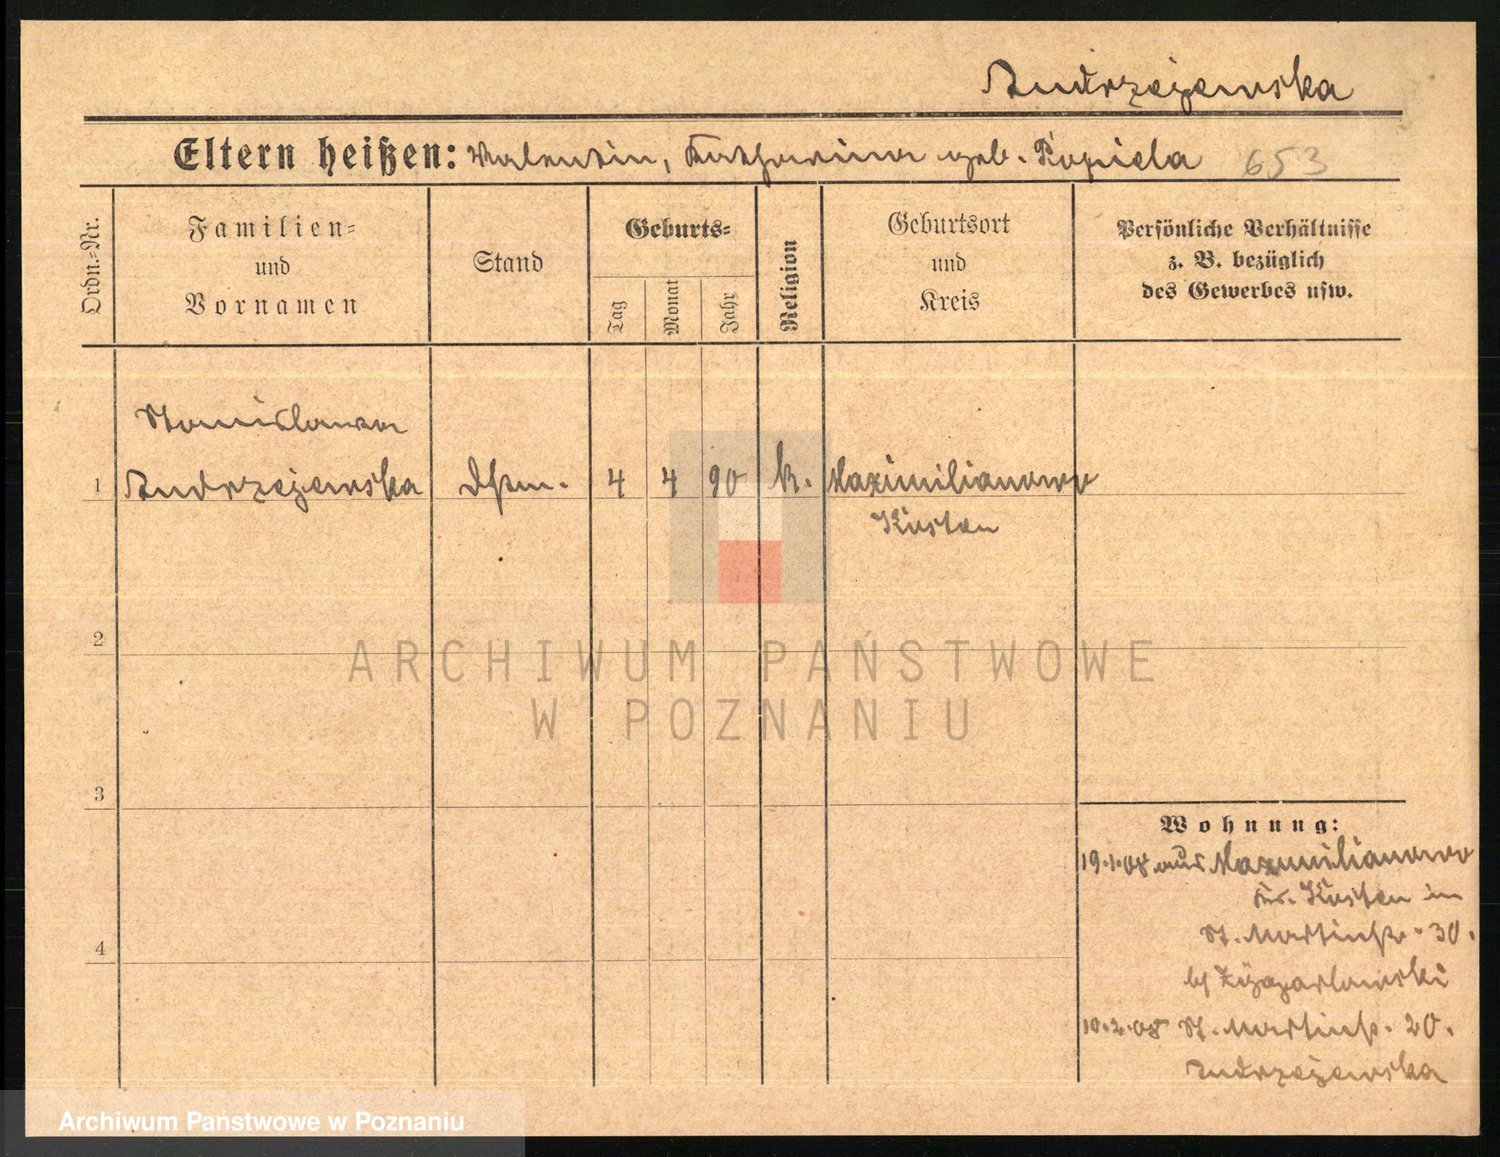 Andrzejewska
Eltern heißen: Valentin, Katharina geb. Kopiela 653
Ordn.=Nr.
Familien=
und
Vornamen
Stand
Geburts=
Tag
Monat
Jahr
Religion
Geburtsort
und
Kreis
Persönliche Verhältnisse
z. B. bezüglich
des Gewerbes usw.
Stanislawa
1 Andrzejewska 4 4 90 k. Maximilianowo
Kosten
2
3
4
Wohnung:
19.1.08 aus Maximilianowo
Kr. Kosten in
St. Martinstr. 30.
10.2.08 St. Martinstr. 20.
Andrzejewska
ARCHIWUM PAŃSTWOWE
W POZNANIU
Archiwum Państwowe w Poznaniu